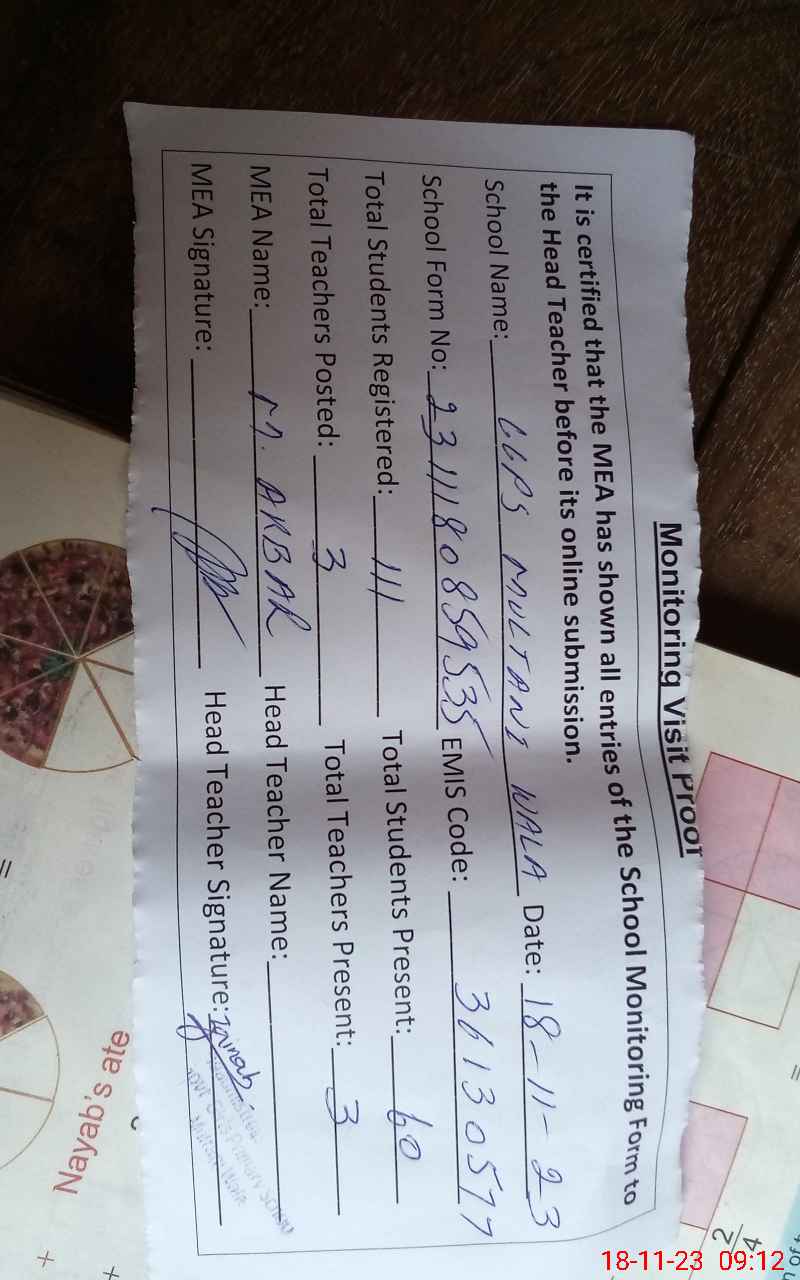 Monitoring Visit Proof
It is certified that the MEA has shown all entries of the School Monitoring Form to
the Head Teacher before its online submission.
School Name: GGPS MULTANI WALA Date: 18-11-23
School Form No: 2311180859535 EMIS Code: 36130577
Total Students Registered: 111 Total Students Present: 60
Total Teachers Posted: 3 Total Teachers Present: 3
MEA Name: M. AKBAR Head Teacher Name:
MEA Signature: Head Teacher Signature: Zainab
Primary School
Nayab's
2/4
=
=
+
+
18-11-23 09:12